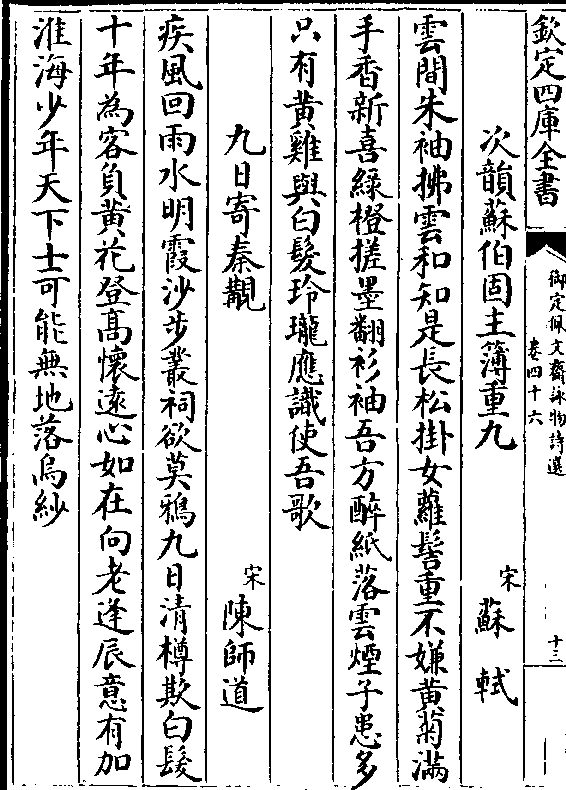 欽定四庫全書
御定佩文齋詠物詩選
卷四十六
十三
次韻蘇伯固主簿重九
宋 蘇軾
雲間朱袖拂雲和知是長松掛女蘿髻重不嫌黄菊滿
手香新喜綠橙搓墨翻衫袖吾方醉紙落雲煙子患多
只有黄雞與白髮玲瓏應識使吾歌
九日寄秦覯
宋 陳師道
疾風回雨水明霞沙步叢祠欲莫鴉九日清樽欺白髮
十年為客負黄花登髙懷逺心如在向老逢辰意有加
淮海少年天下士可能無地落烏紗